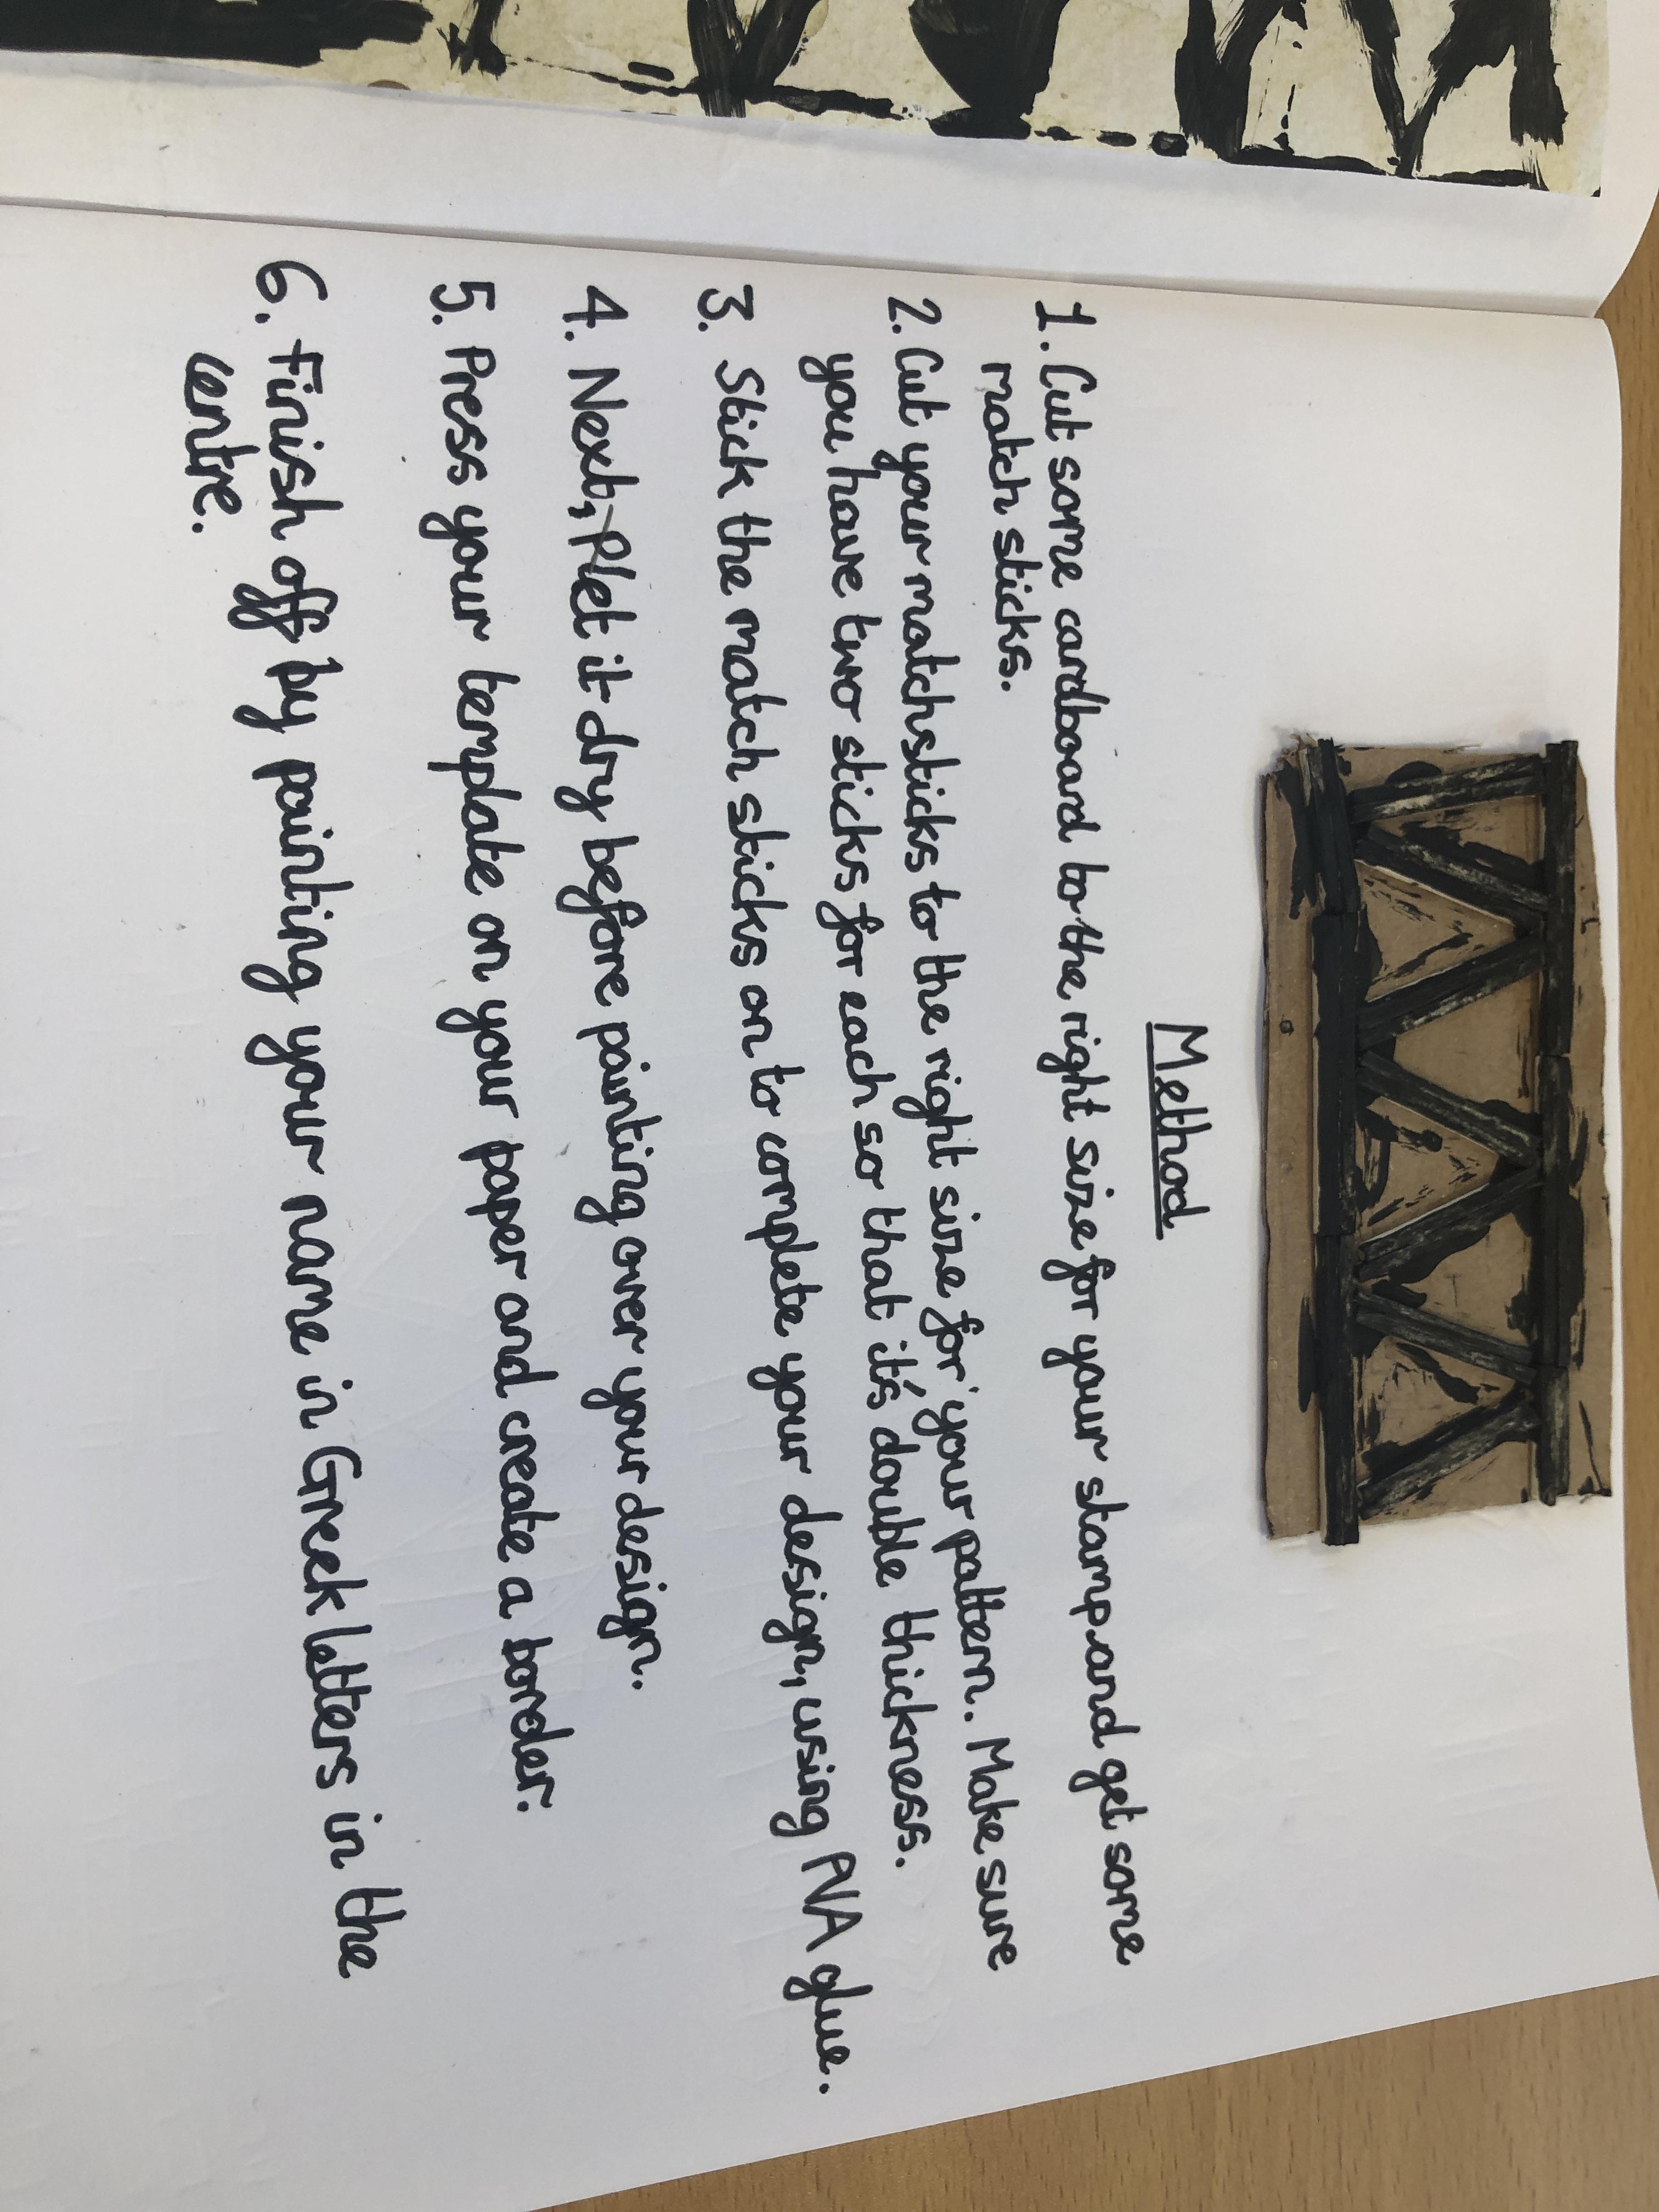 Method
1. Cut some cardboard to the right size for your stamp and get some
match sticks.
2. Cut your matchsticks to the right size for your pattern. Make sure
you have two sticks for each so that it's double thickness.
3. Stick the match sticks on to complete your design, using PVA glue.
4. Next, let it dry before painting over your design.
5. Press your template on your paper and create a border.
6. Finish off by painting your name in Greek letters in the
centre.